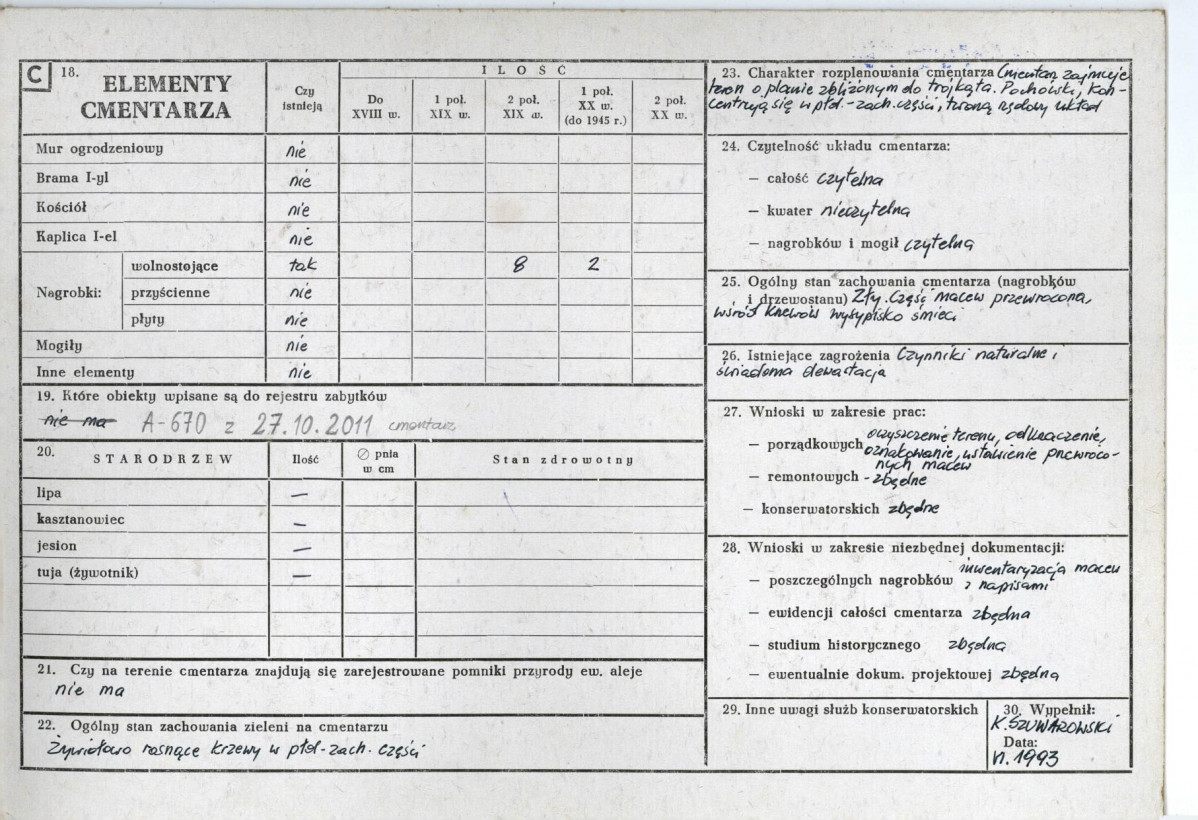 C 18. ELEMENTY CMENTARZA
Czy istnieją
ILOŚĆ
Do XVIII w.
1 poł. XIX w.
2 poł. XIX w.
1 poł. XX w. (do 1945 r.)
2 poł. XX w.
Mur ogrodzeniowy nie
Brama I-yl nie
Kościół nie
Kaplica I-el nie
Nagrobki: wolnostojące tak 8 2
przyścienne nie
płyty nie
Mogiły nie
Inne elementy nie
19. Które obiekty wpisane są do rejestru zabytków
nie ma A-670 z 27.10.2011 cmentarz
20. STARODRZEW Ilość ∅ pnia w cm Stan zdrowotny
lipa —
kasztanowiec —
jesion —
tuja (żywotnik) —
21. Czy na terenie cmentarza znajdują się zarejestrowane pomniki przyrody ew. aleje
nie ma
22. Ogólny stan zachowania zieleni na cmentarzu
Żywiołowo rosnące krzewy w płd-zach. części
23. Charakter rozplanowania cmentarza Cmentarz zajmuje
teren o planie zbliżonym do trójkąta. Pochówki, kon-
centrują się w płd.-zach. części, tworzą rzędowy układ
24. Czytelność układu cmentarza:
— całość czytelna
— kwater nieczytelna
— nagrobków i mogił czytelna
25. Ogólny stan zachowania cmentarza (nagrobków
i drzewostanu) Zły. Część macew przewrócona,
wśród krzewów wysypisko śmieci
26. Istniejące zagrożenia Czynniki naturalne i
świadoma dewastacja
27. Wnioski w zakresie prac:
— porządkowych oczyszczenie terenu, odkrzaczenie,
oznakowanie, ustawienie przewróco-
nych macew
— remontowych - zbędne
— konserwatorskich zbędne
28. Wnioski w zakresie niezbędnej dokumentacji:
— poszczególnych nagrobków inwentaryzacja macew
z napisami
— ewidencji całości cmentarza zbędna
— studium historycznego zbędna
— ewentualnie dokum. projektowej zbędna
29. Inne uwagi służb konserwatorskich
30. Wypełnił:
K. SZUWAROWSKI
Data:
VI. 1993